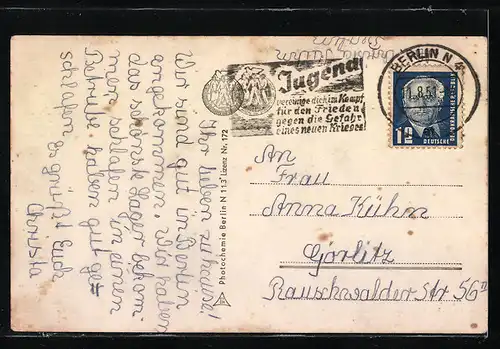 Ihr Lieben zu haus!
Wir sind gut in Berlin
angekommen. Wir haben
das schönste Lager bekom-
men, schlafen in einen
Betrube, haben gut ge=
schlafen
Es grüßt Euch
Christa
Photochemie Berlin N 113 Lizenz Nr. 172
Jugend
vereinige dich im Kampf
für den Frieden
gegen die Gefahr
eines neuen Krieges!
BERLIN N 4
8.51
12
DEUTSCHE
An
Frau
Anna Kühm
Görlitz
Rauschwalder Str 56 II